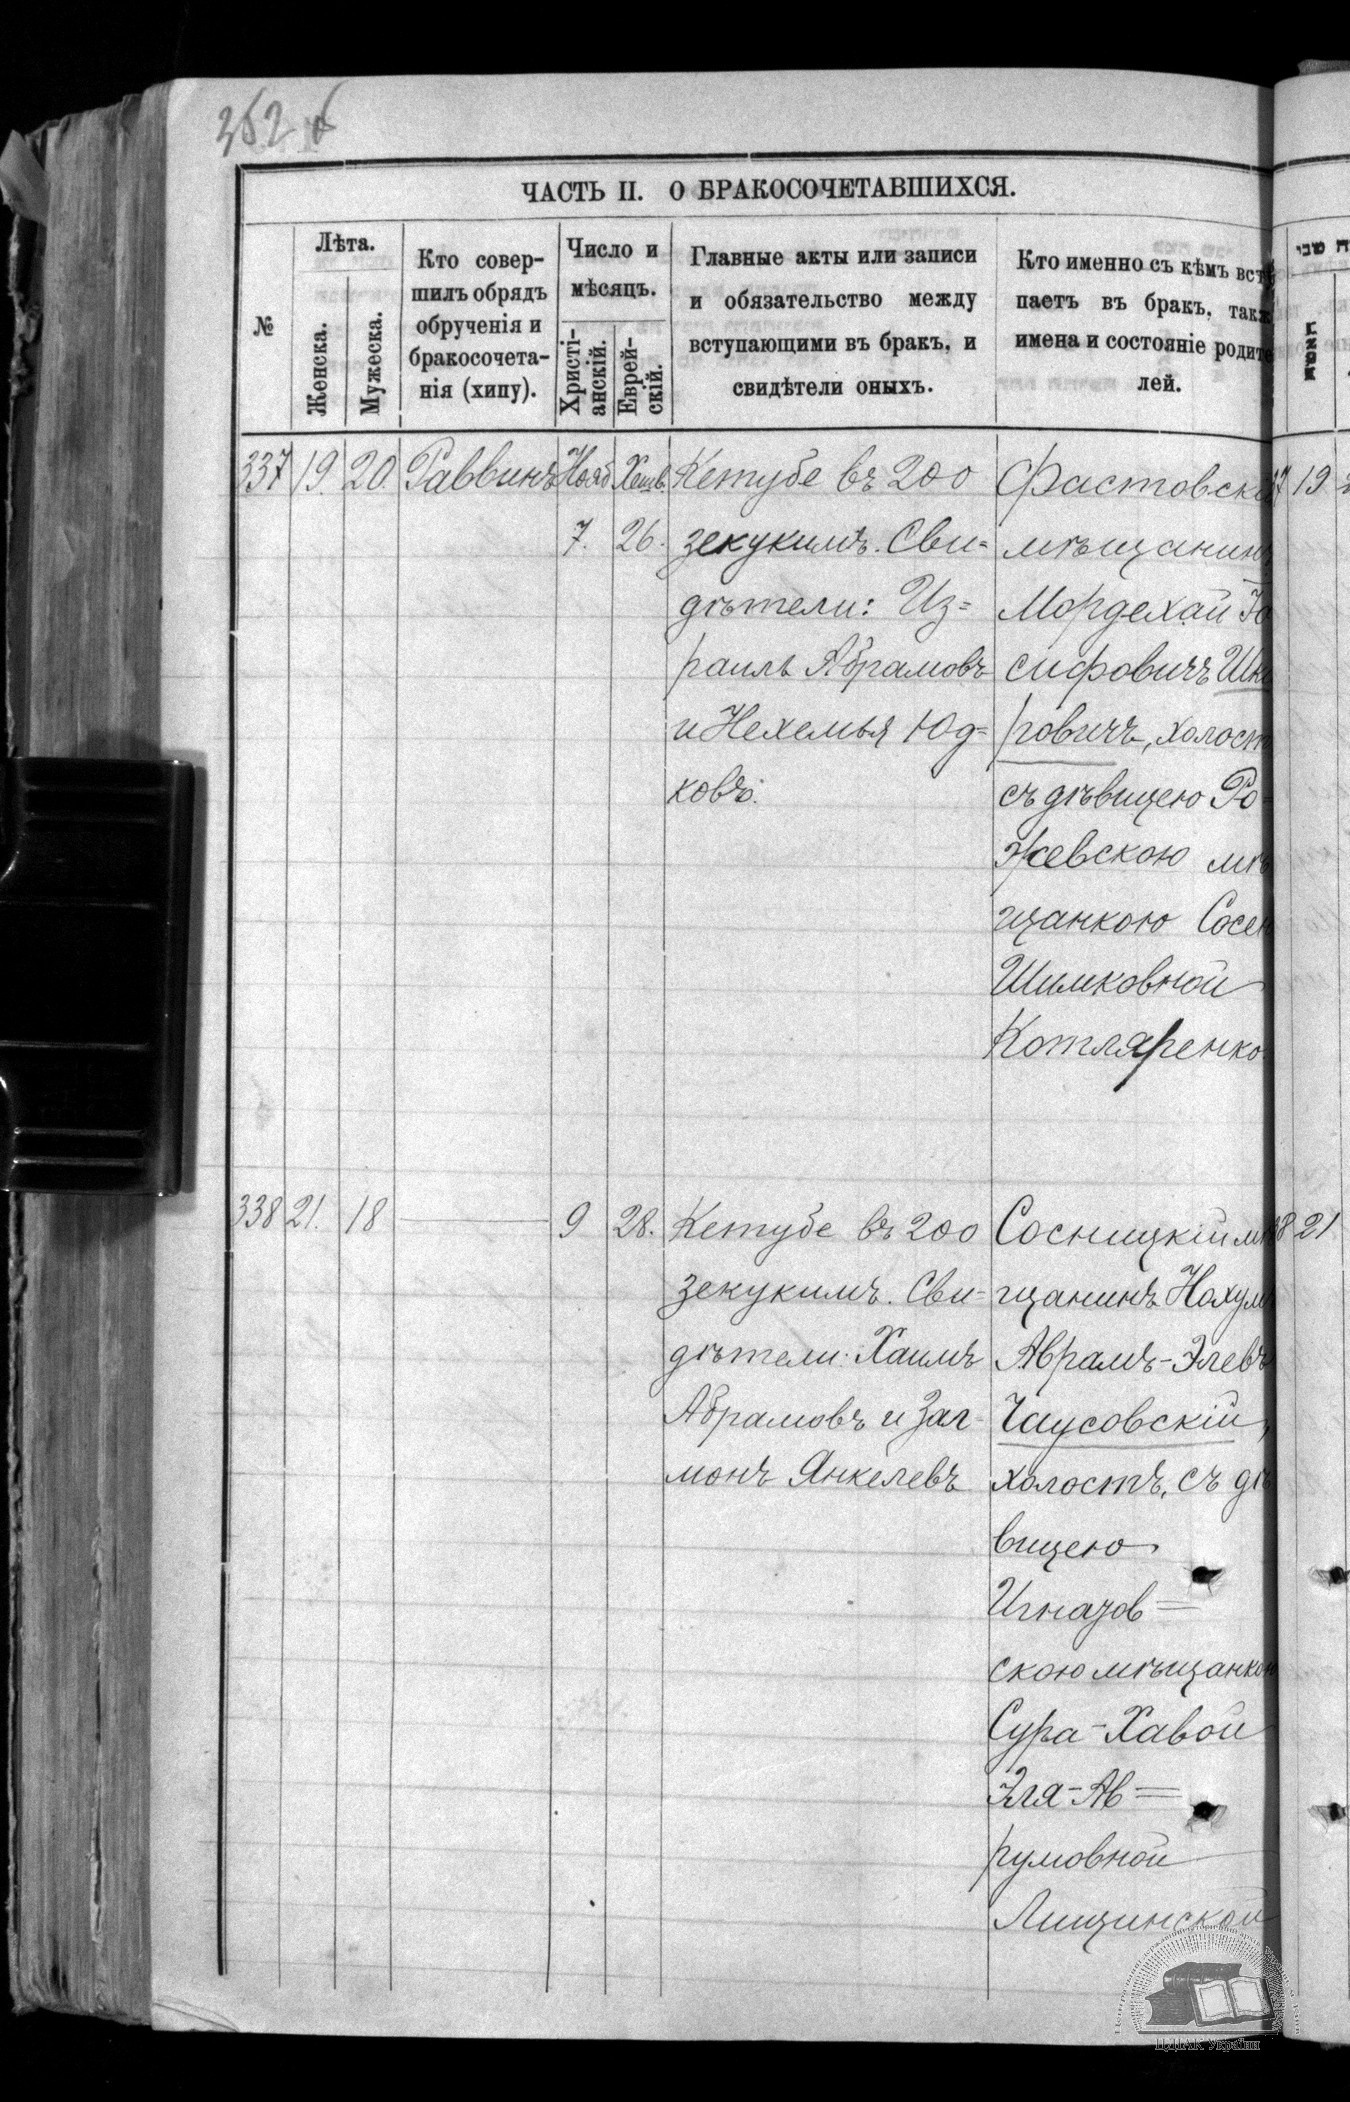 352 б
ЧАСТЬ II. О БРАКОСОЧЕТАВШИХСЯ.
№
Лѣта.
Женска.
Мужеска.
Кто совер-
шилъ обрядъ
обрученія и
бракосочета-
нія (хипу).
Число и
мѣсяцъ.
Христі-
анскій.
Еврей-
скій.
Главные акты или записи
и обязательство между
вступающими въ бракъ, и
свидѣтели оныхъ.
Кто именно съ кѣмъ всту
паетъ въ бракъ, такж
имена и состояніе родите
лей.
337 19. 20. Раввинъ
Нояб
7.
Хешв.
26.
Кетубе въ 200
зекукимъ. Сви=
дѣтели: Из=
раиль Абрамовъ
и Нехемья Юд=
ковъ.
Фастовскі
мѣщанинъ
Мордехай Іо
сифовичъ Шка
ровичъ, холост
съ дѣвицею Ро=
жевскою мѣ
щанкою Сосен
Шимковной
Котляренко
338 21. 18 9 28.
Кетубе въ 200
зекукимъ. Сви=
дѣтели: Хаимъ
Абрамовъ и Зал-
монъ Янкелевъ
Сосницкій мѣ
щанинъ Нохум
Аврамъ-Элевъ
Чаусовскій,
холостъ, съ дѣ
вицею
Игнатов=
скою мѣщанкою
Сура-Хавой
Эля-Ав=
румовной
Лищинской
7 19
8 21
ЦДІАК України